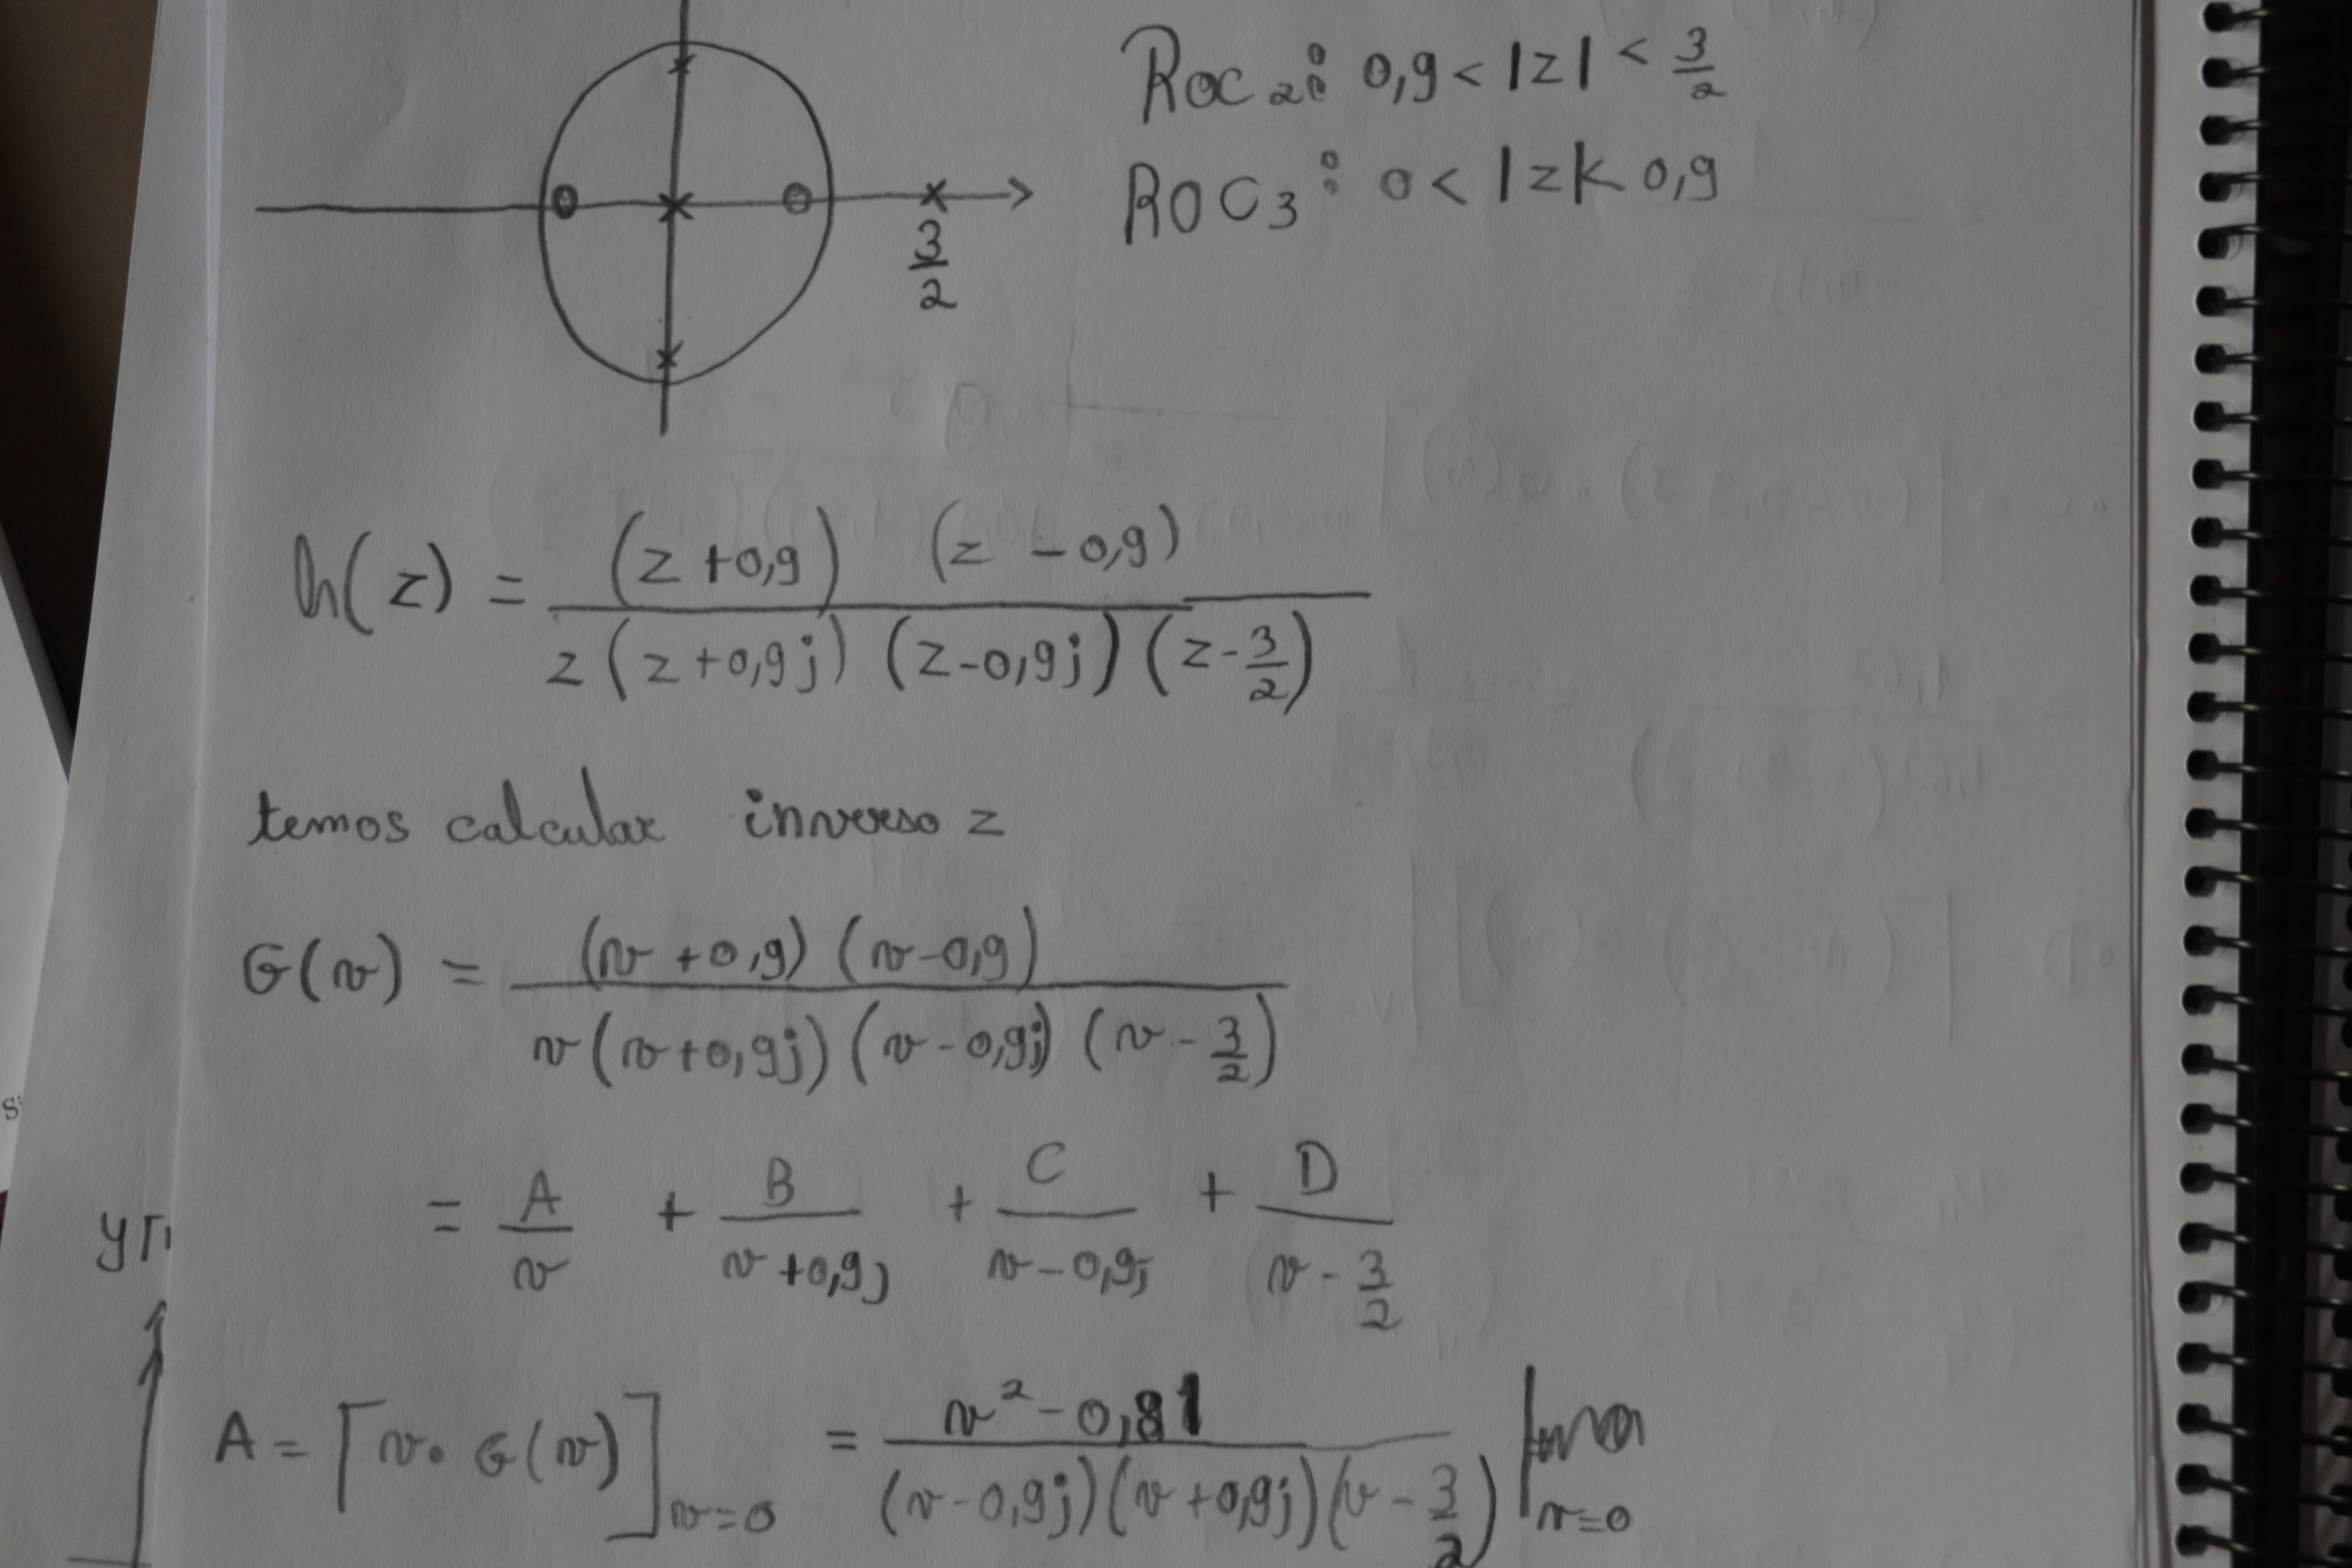 Roc₂: 0,9 < |z| < 3/2
ROC₃: 0 < |z| < 0,9
3/2
h(z) = (z + 0,9) (z - 0,9) / z (z + 0,9j) (z - 0,9j) (z - 3/2)
temos calcular inverso z
G(v) = (v + 0,9) (v - 0,9) / v (v + 0,9j) (v - 0,9j) (v - 3/2)
= A/v + B/(v + 0,9j) + C/(v - 0,9j) + D/(v - 3/2)
A = [v. G(v)] v=0 = v² - 0,81 / (v - 0,9j) (v + 0,9j) (v - 3/2) | v=0